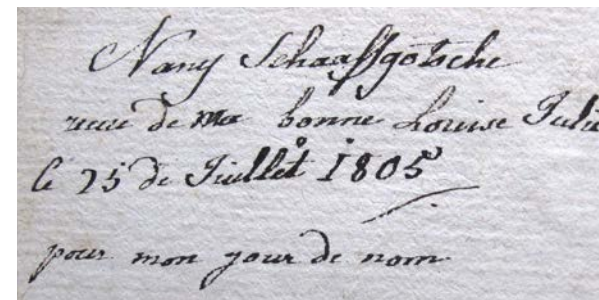 Nany Schaaffgotsche
recu de ma bonne Louise Julie
le 25 de Juillet 1805
pour mon jour de nom